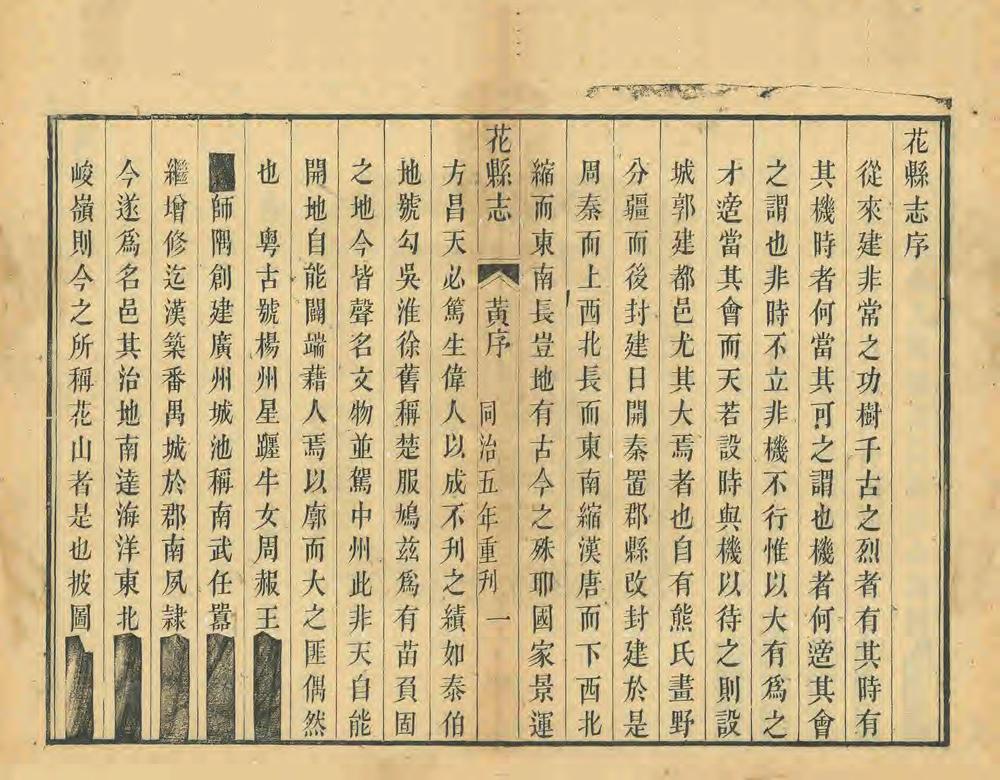 花縣志序
從來建非常之功樹千古之烈者有其時有
其機時者何當其可之謂也機者何適其會
之謂也非時不立非機不行惟以大有為之
才適當其會而天若設時與機以待之則設
城郭建都邑尤其大焉者也自有熊氏畫野
分疆而後封建日開秦置郡縣改封建於是
周秦而上西北長而東南縮漢唐而下西北
縮而東南長豈地有古今之殊耶國家景運
花縣志 黃序 同治五年重刋 一
方昌天必篤生偉人以成不刋之績如泰伯
地號勾吳淮徐舊稱楚服鳩茲為有苗負固
之地今皆聲名文物並駕中州此非天自能
開地自能闢端藉人焉以廓而大之匪偶然
也 粵古號楊州星躔牛女周赧王
師隅創建廣州城池稱南武任囂
繼增修迄漢築番禺城於郡南夙隷
今遂為名邑其治地南達海洋東北
峻嶺則今之所稱花山者是也披圖